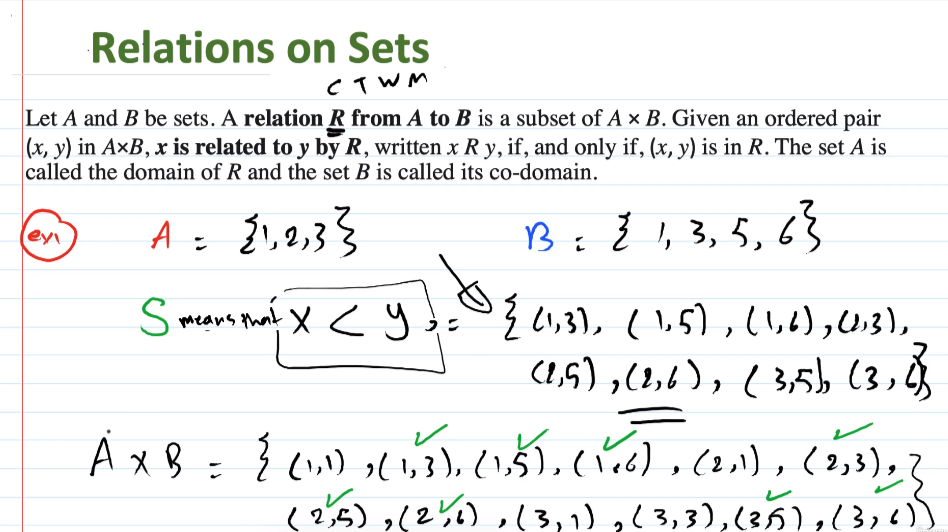 Relations on Sets
C T W M
Let A and B be sets. A relation R from A to B is a subset of A × B. Given an ordered pair
(x, y) in A×B, x is related to y by R, written x R y, if, and only if, (x, y) is in R. The set A is
called the domain of R and the set B is called its co-domain.
ex1 A = {1,2,3} B = { 1, 3, 5, 6}
S means that x < y ; = { (1,3), (1,5), (1,6), (2,3),
(2,5), (2,6), (3,5), (3,6)}
A x B = { (1,1), (1,3), (1,5), (1,6), (2,1), (2,3),
(2,5), (2,6), (3,1), (3,3), (3,5), (3,6) }